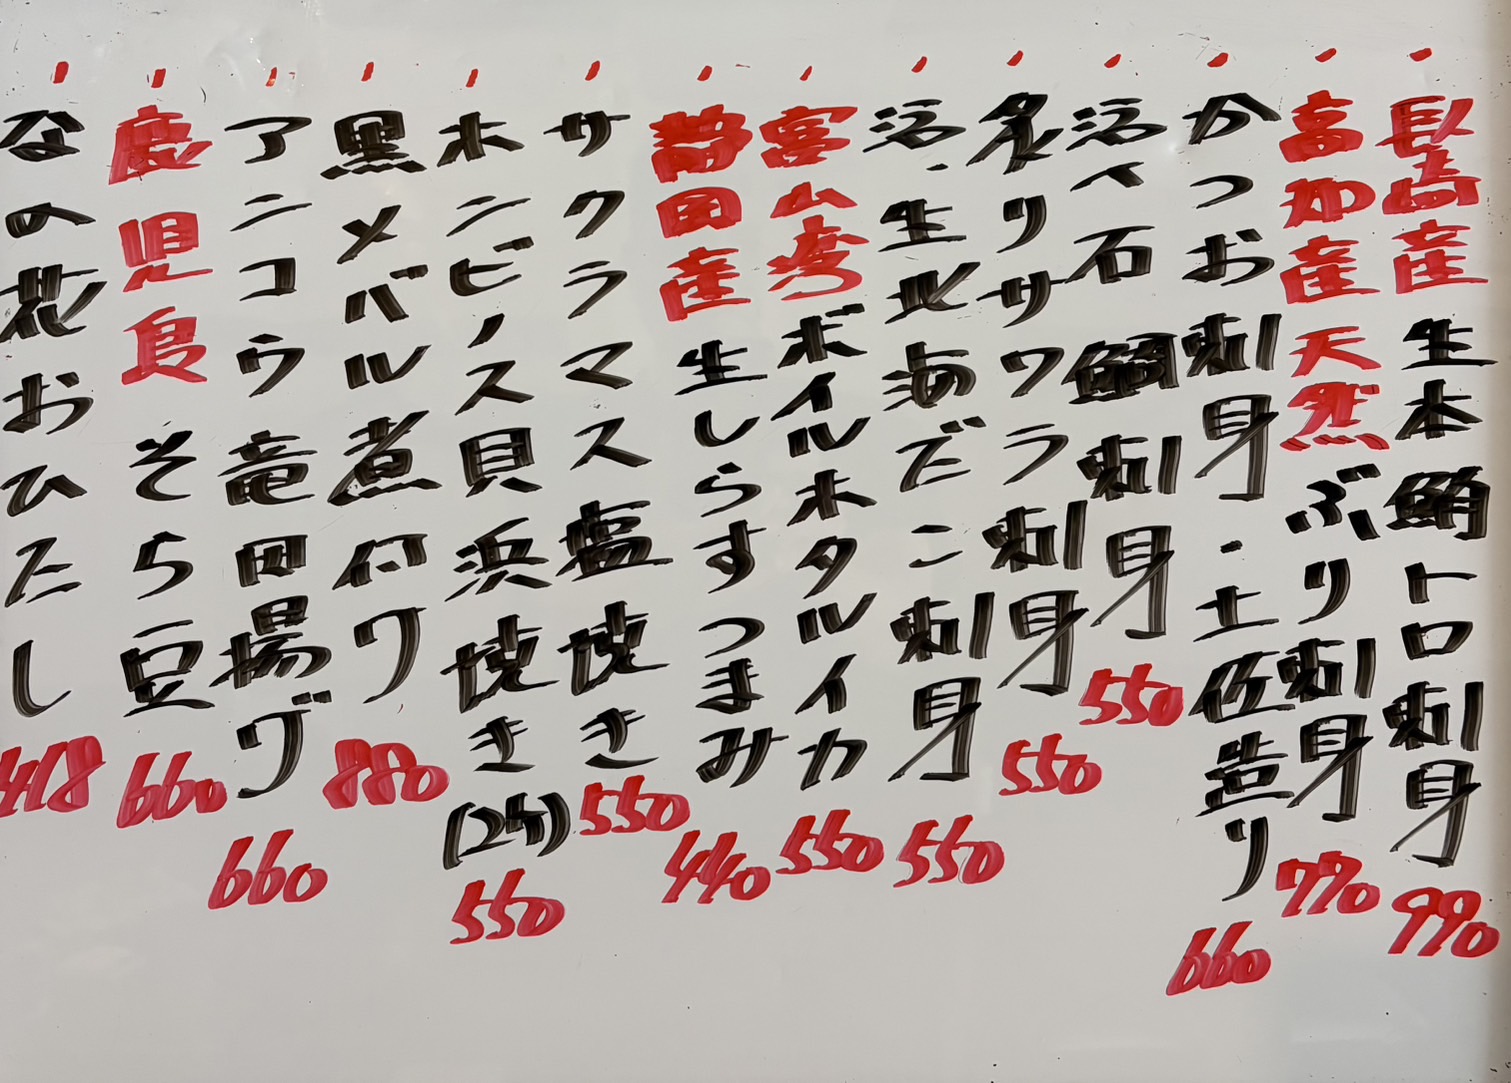 長崎産 生本鮪トロ刺身 990
高知産 天然 ぶり刺身 770
かつお刺身・土佐造り 660
活〆石鯛刺身 550
炙りサワラ刺身 550
活・生北あだこ刺身 550
富山湾 ボイルホタルイカ 550
静岡産 生しらすつまみ 440
サクラマス塩焼き 550
ホンビノス貝浜焼き(2ケ) 550
黒メバル煮付ワ 880
アンコウ竜田揚ゲ 660
鹿児島 そら豆 660
なの花おひたし 418